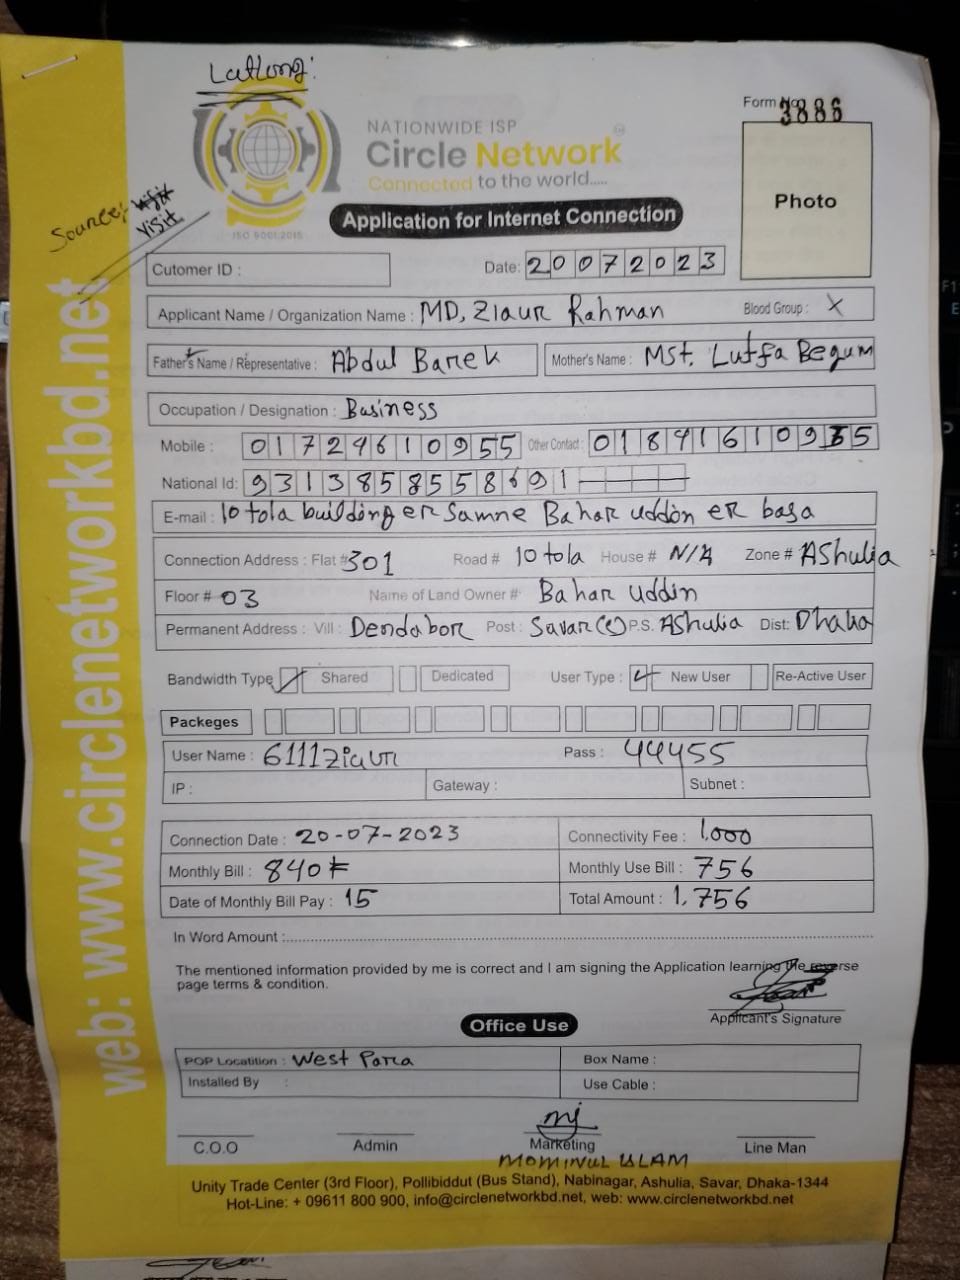 Latlong:
Form No 3886
NATIONWIDE ISP
Circle Network
Connected to the world.....
ISO 9001:2015
Photo
Source: Visit
Application for Internet Connection
Cutomer ID :
Date: 20072023
Applicant Name / Organization Name : MD, Ziaur Rahman Blood Group : X
Father's Name / Representative : Abdul Barek Mother's Name : Mst. Lutfa Begum
Occupation / Designation : Business
Mobile : 01724610955 Other Contact : 018416109
National Id: 9313858558691
E-mail : 10 tola building er Samne Bahar uddin er basa
Connection Address : Flat # 301 Road # 10 tola House # N/A Zone # AShulia
Floor # 03 Name of Land Owner # Bahar uddin
Permanent Address : Vill : Dendabor Post : Savar P.S. AShulia Dist: Dhaka
Bandwidth Type Shared Dedicated User Type : New User Re-Active User
Packeges
User Name : 6111Ziaur Pass : 44455
IP : Gateway : Subnet :
Connection Date : 20-07-2023 Connectivity Fee : 1,000
Monthly Bill : 840 Monthly Use Bill : 756
Date of Monthly Bill Pay : 15 Total Amount : 1,756
In Word Amount :
The mentioned information provided by me is correct and I am signing the Application learning the reverse
page terms & condition.
Applicant's Signature
Office Use
POP Locatition : West Para Box Name :
Installed By : Use Cable :
C.O.O Admin Marketing Line Man
MOMINUL ISLAM
Unity Trade Center (3rd Floor), Pollibiddut (Bus Stand), Nabinagar, Ashulia, Savar, Dhaka-1344
Hot-Line: + 09611 800 900, info@circlenetworkbd.net, web: www.circlenetworkbd.net
web: www.circlenetworkbd.net